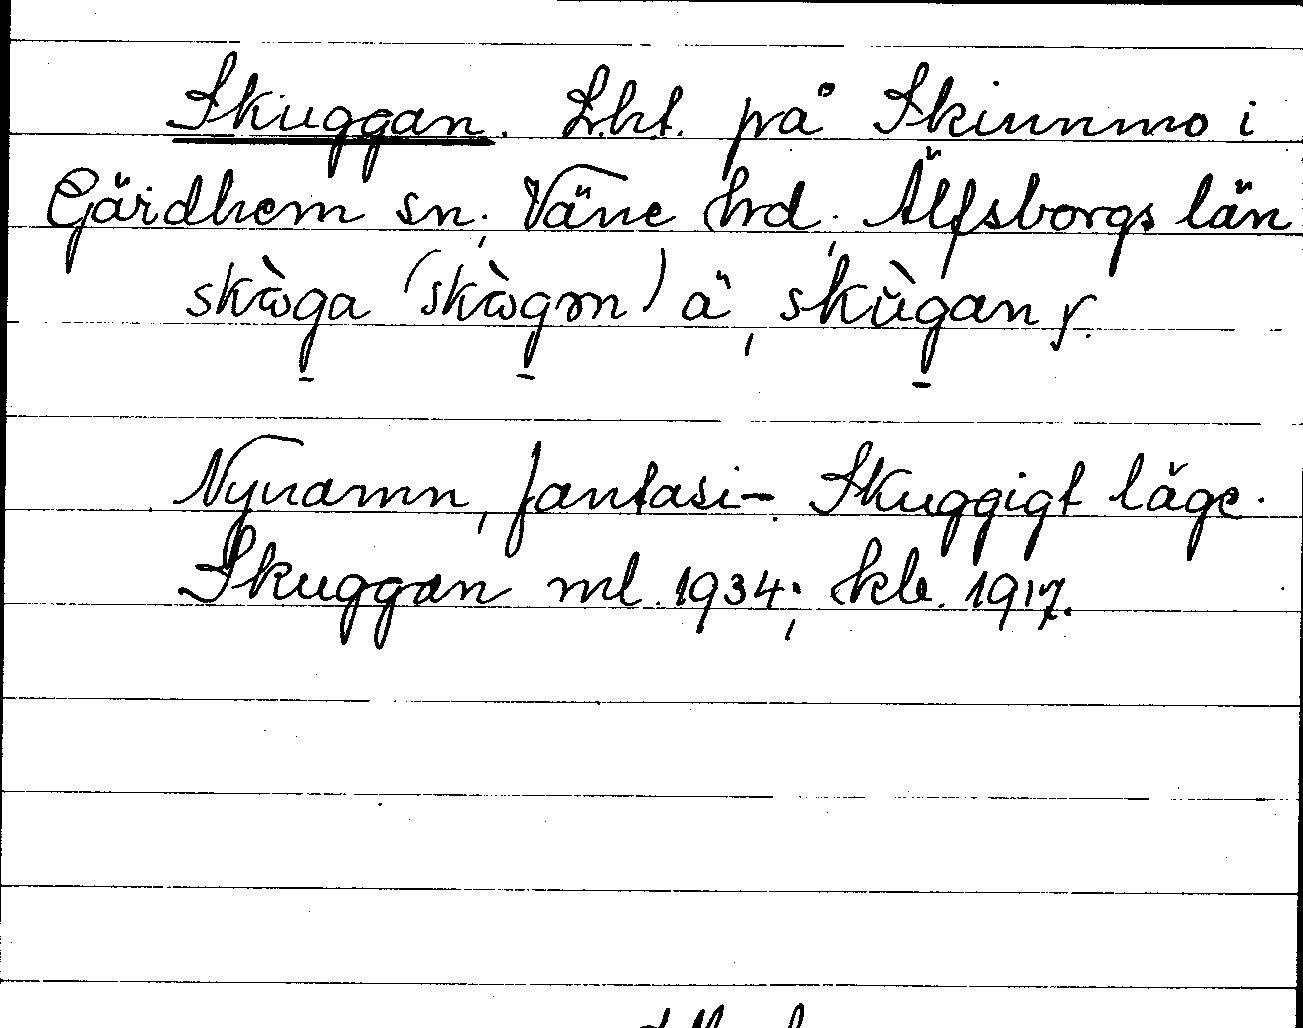 Skuggan. Lht. på Skinnmo i
Gärdhem sn, Väne hrd, Älfsborgs län
skòga (skògɷn) ä, skùgan y.
Nynamn, fantasi-. Skuggigt läge.
Skuggan ml. 1934; hkb. 1917.